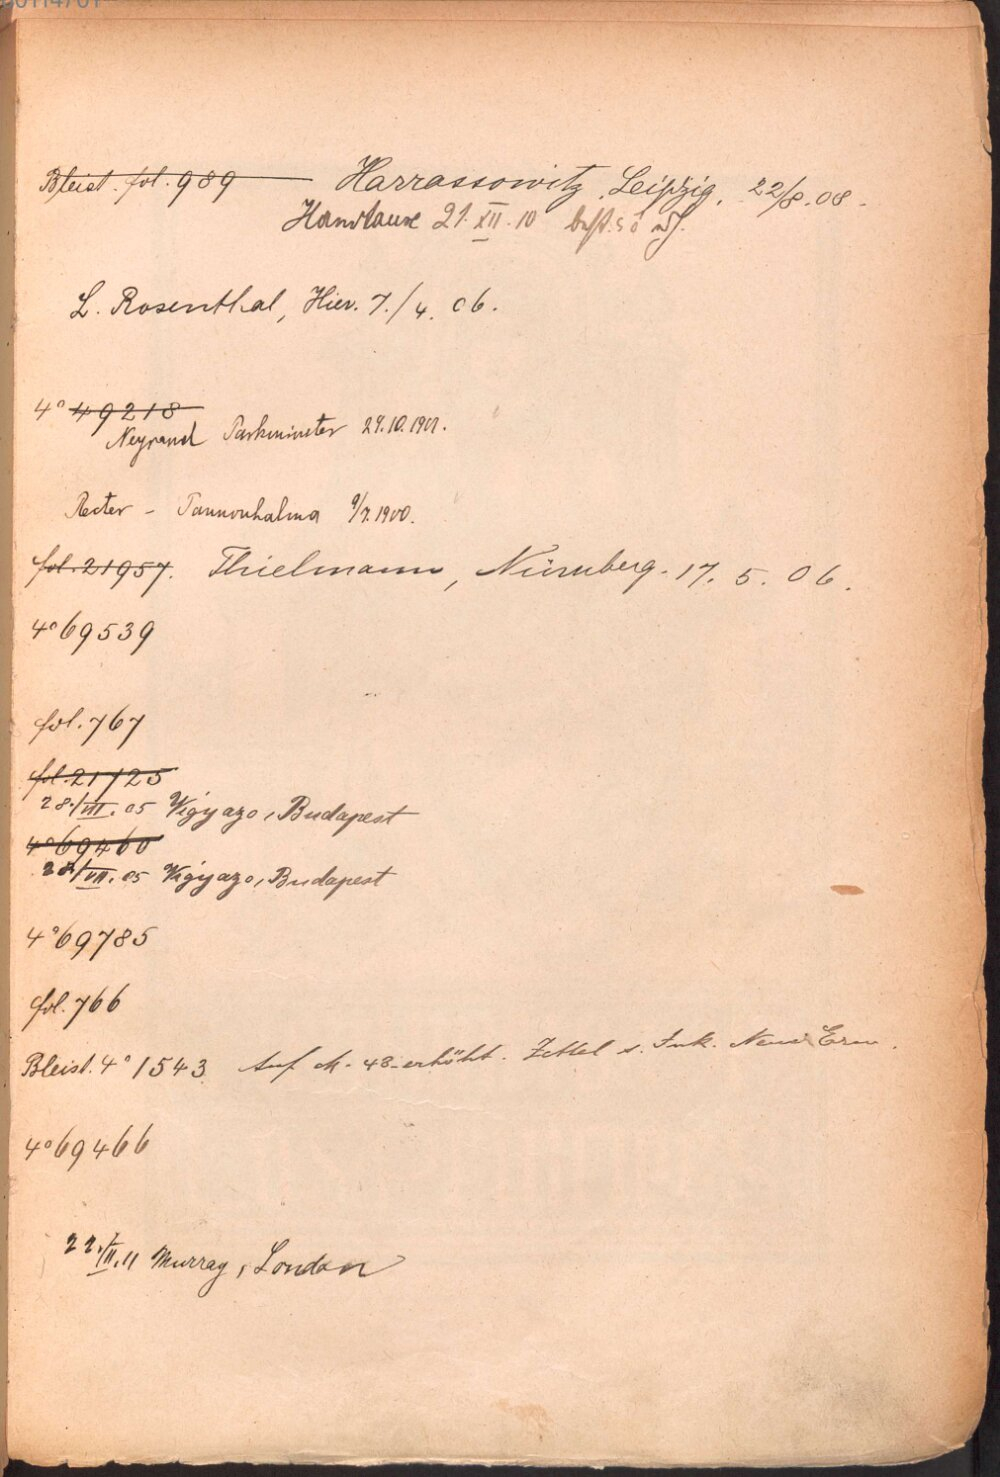 Bleist. fol. 989 Harrassowitz, Leipzig, 22/8. 08.
21. XII. 10
L. Rosenthal, Hier. 7./4. 06.
4° 49218
Neyrand Parkminster 29.10.1901.
Recter - Pannonhalma 9/7.1900.
fol. 21957. Thielmann, Nürnberg. 17. 5. 06.
4° 69539
fol. 767
fol. 21725
28./VIII. 05 Vigyazo, Budapest
4° 69460
28/VIII. 05 Vigyazo, Budapest
4° 69785
fol. 766
Bleist. 4° 1543 Auf M. 48- erhöht. Zettel s. Ink.
4° 69466
22./II. 11 Murray, London